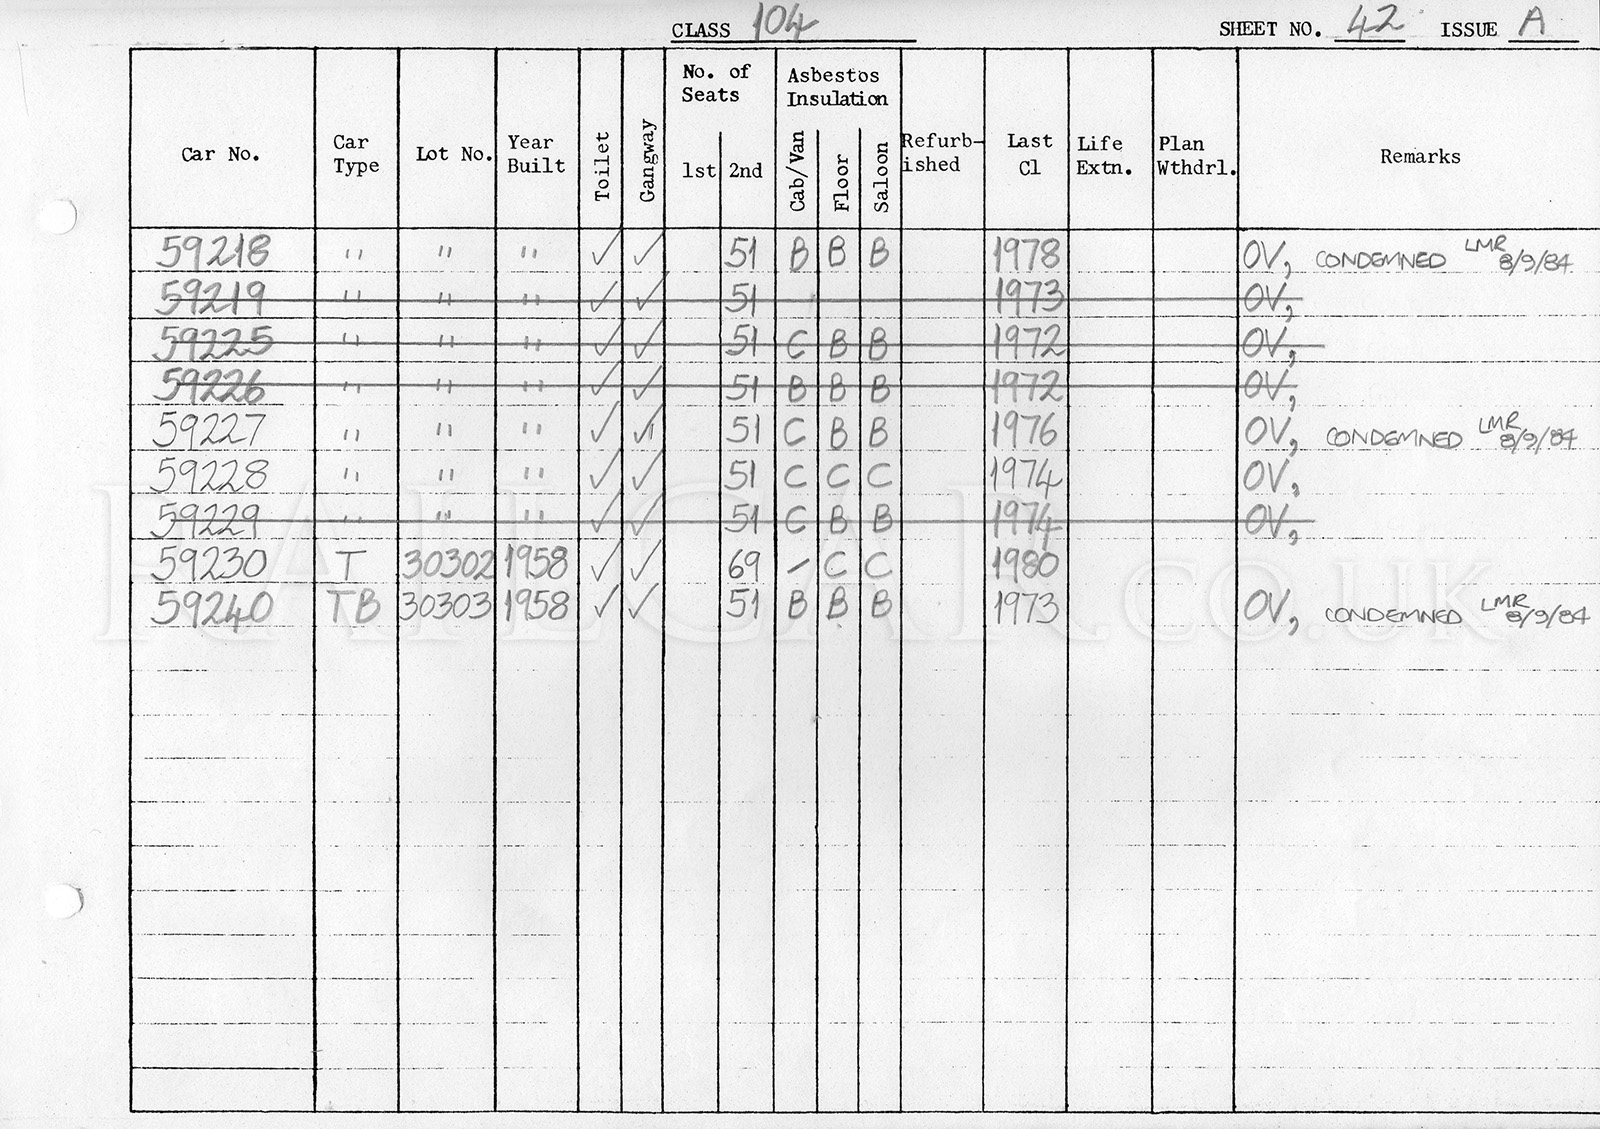 CLASS 104 SHEET NO. 42 ISSUE A
No. of Seats Asbestos Insulation
Car No. Car Type Lot No. Year Built Toilet Gangway 1st 2nd Cab/Van Floor Saloon Refurb-ished Last Cl Life Extn. Plan Wthdrl. Remarks
59218 " " " ✓ ✓ 51 B B B 1978 OV, CONDEMNED LMR 8/9/84
59219 " " " ✓ ✓ 51 1973 OV,
59225 " " " ✓ ✓ 51 C B B 1972 OV,
59226 " " " ✓ ✓ 51 B B B 1972 OV,
59227 " " " ✓ ✓ 51 C B B 1976 OV, CONDEMNED LMR 8/9/84
59228 " " " ✓ ✓ 51 C C C 1974 OV,
59229 " " " ✓ ✓ 51 C B B 1974 OV,
59230 T 30302 1958 ✓ ✓ 69 – C C 1980
59240 TB 30303 1958 ✓ ✓ 51 B B B 1973 OV, CONDEMNED LMR 8/9/84
RAILCAR.CO.UK